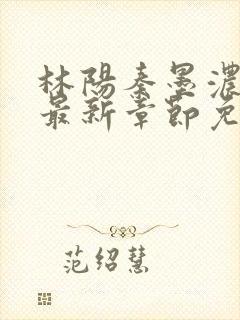 林陽秦墨濃
最新章節免
范紹慧